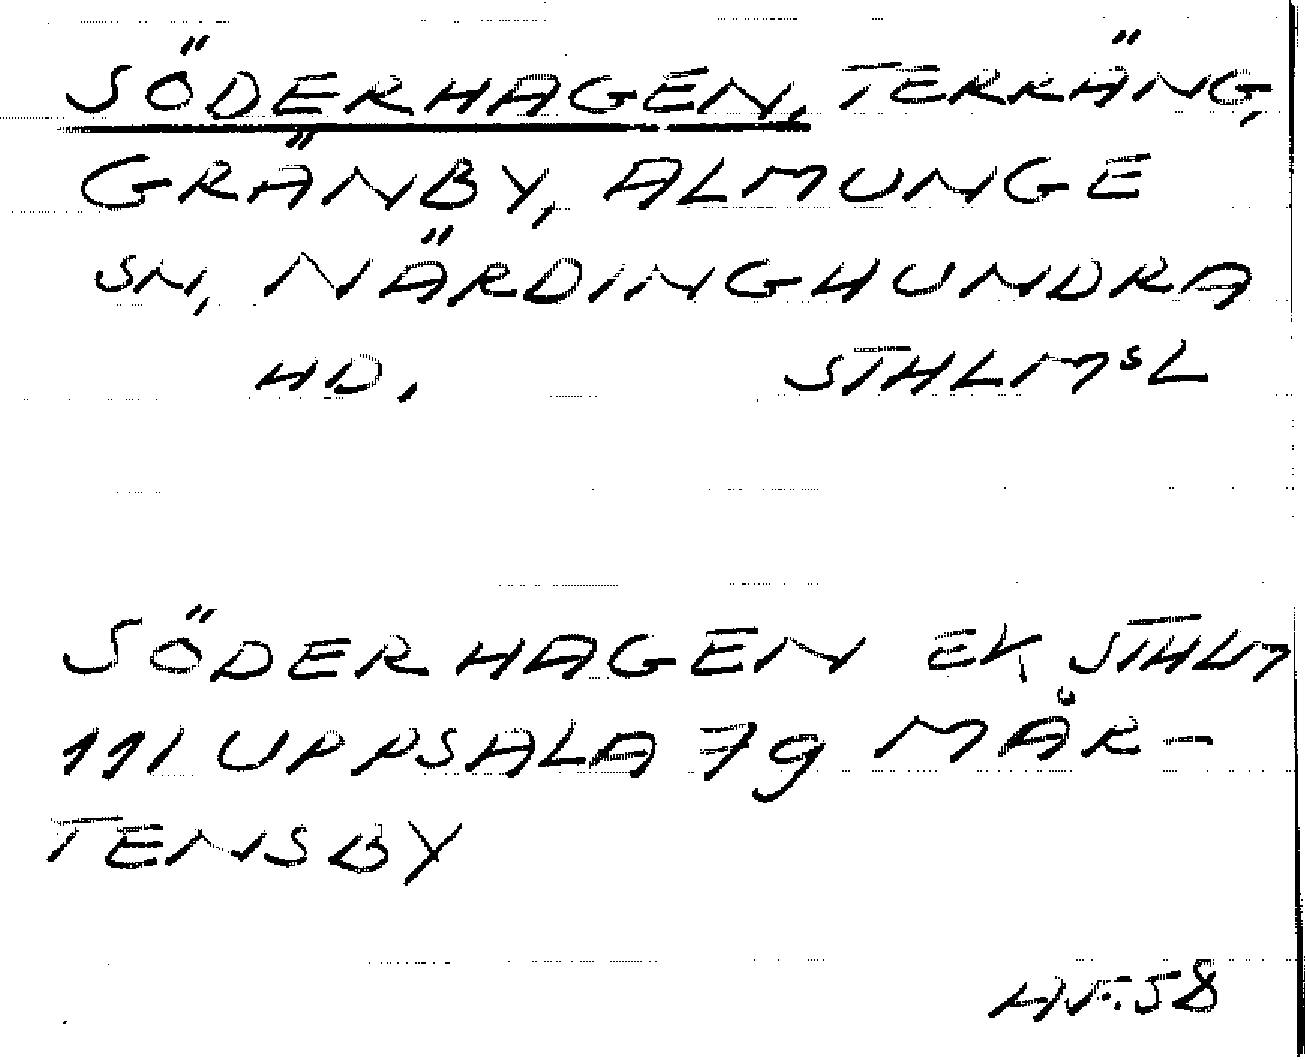 SÖDERHAGEN, TERRÄNG,
GRÄNBY, ALMUNGE
SN, NÄRDINGHUNDRA
HD. STHLMSL
SÖDERHAGEN EK STHLM
111 UPPSALA 79 MÅR-
TENSBY